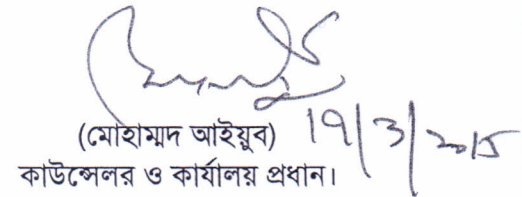 (মোহাম্মদ আইয়ুব)
19/3/2015
কাউন্সেলর ও কার্যালয় প্রধান।